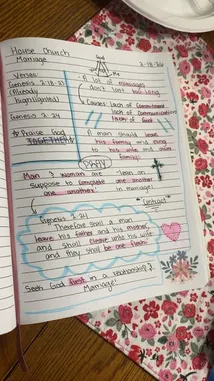 House Church
Marriage
2-18-26
God
Me
Verses
Genesis 2:18-25
(Already
highlighted)
Genesis 2:24
Praise God
TOGETHER
marriages
don't last too long.
Causes: lack of Commitment
lack of Communication
lack of God
A man should leave
his family and cling
to his wife and start
family.
PRAY
Man & Woman are
suppose to complete one
another in marriage!
Contract
Genesis 2:24
Therefore shall a man
leave his father and his mother,
and shall cleave unto his wife
and they shall be one flesh.
Seek God first in a relationship &
Marriage!